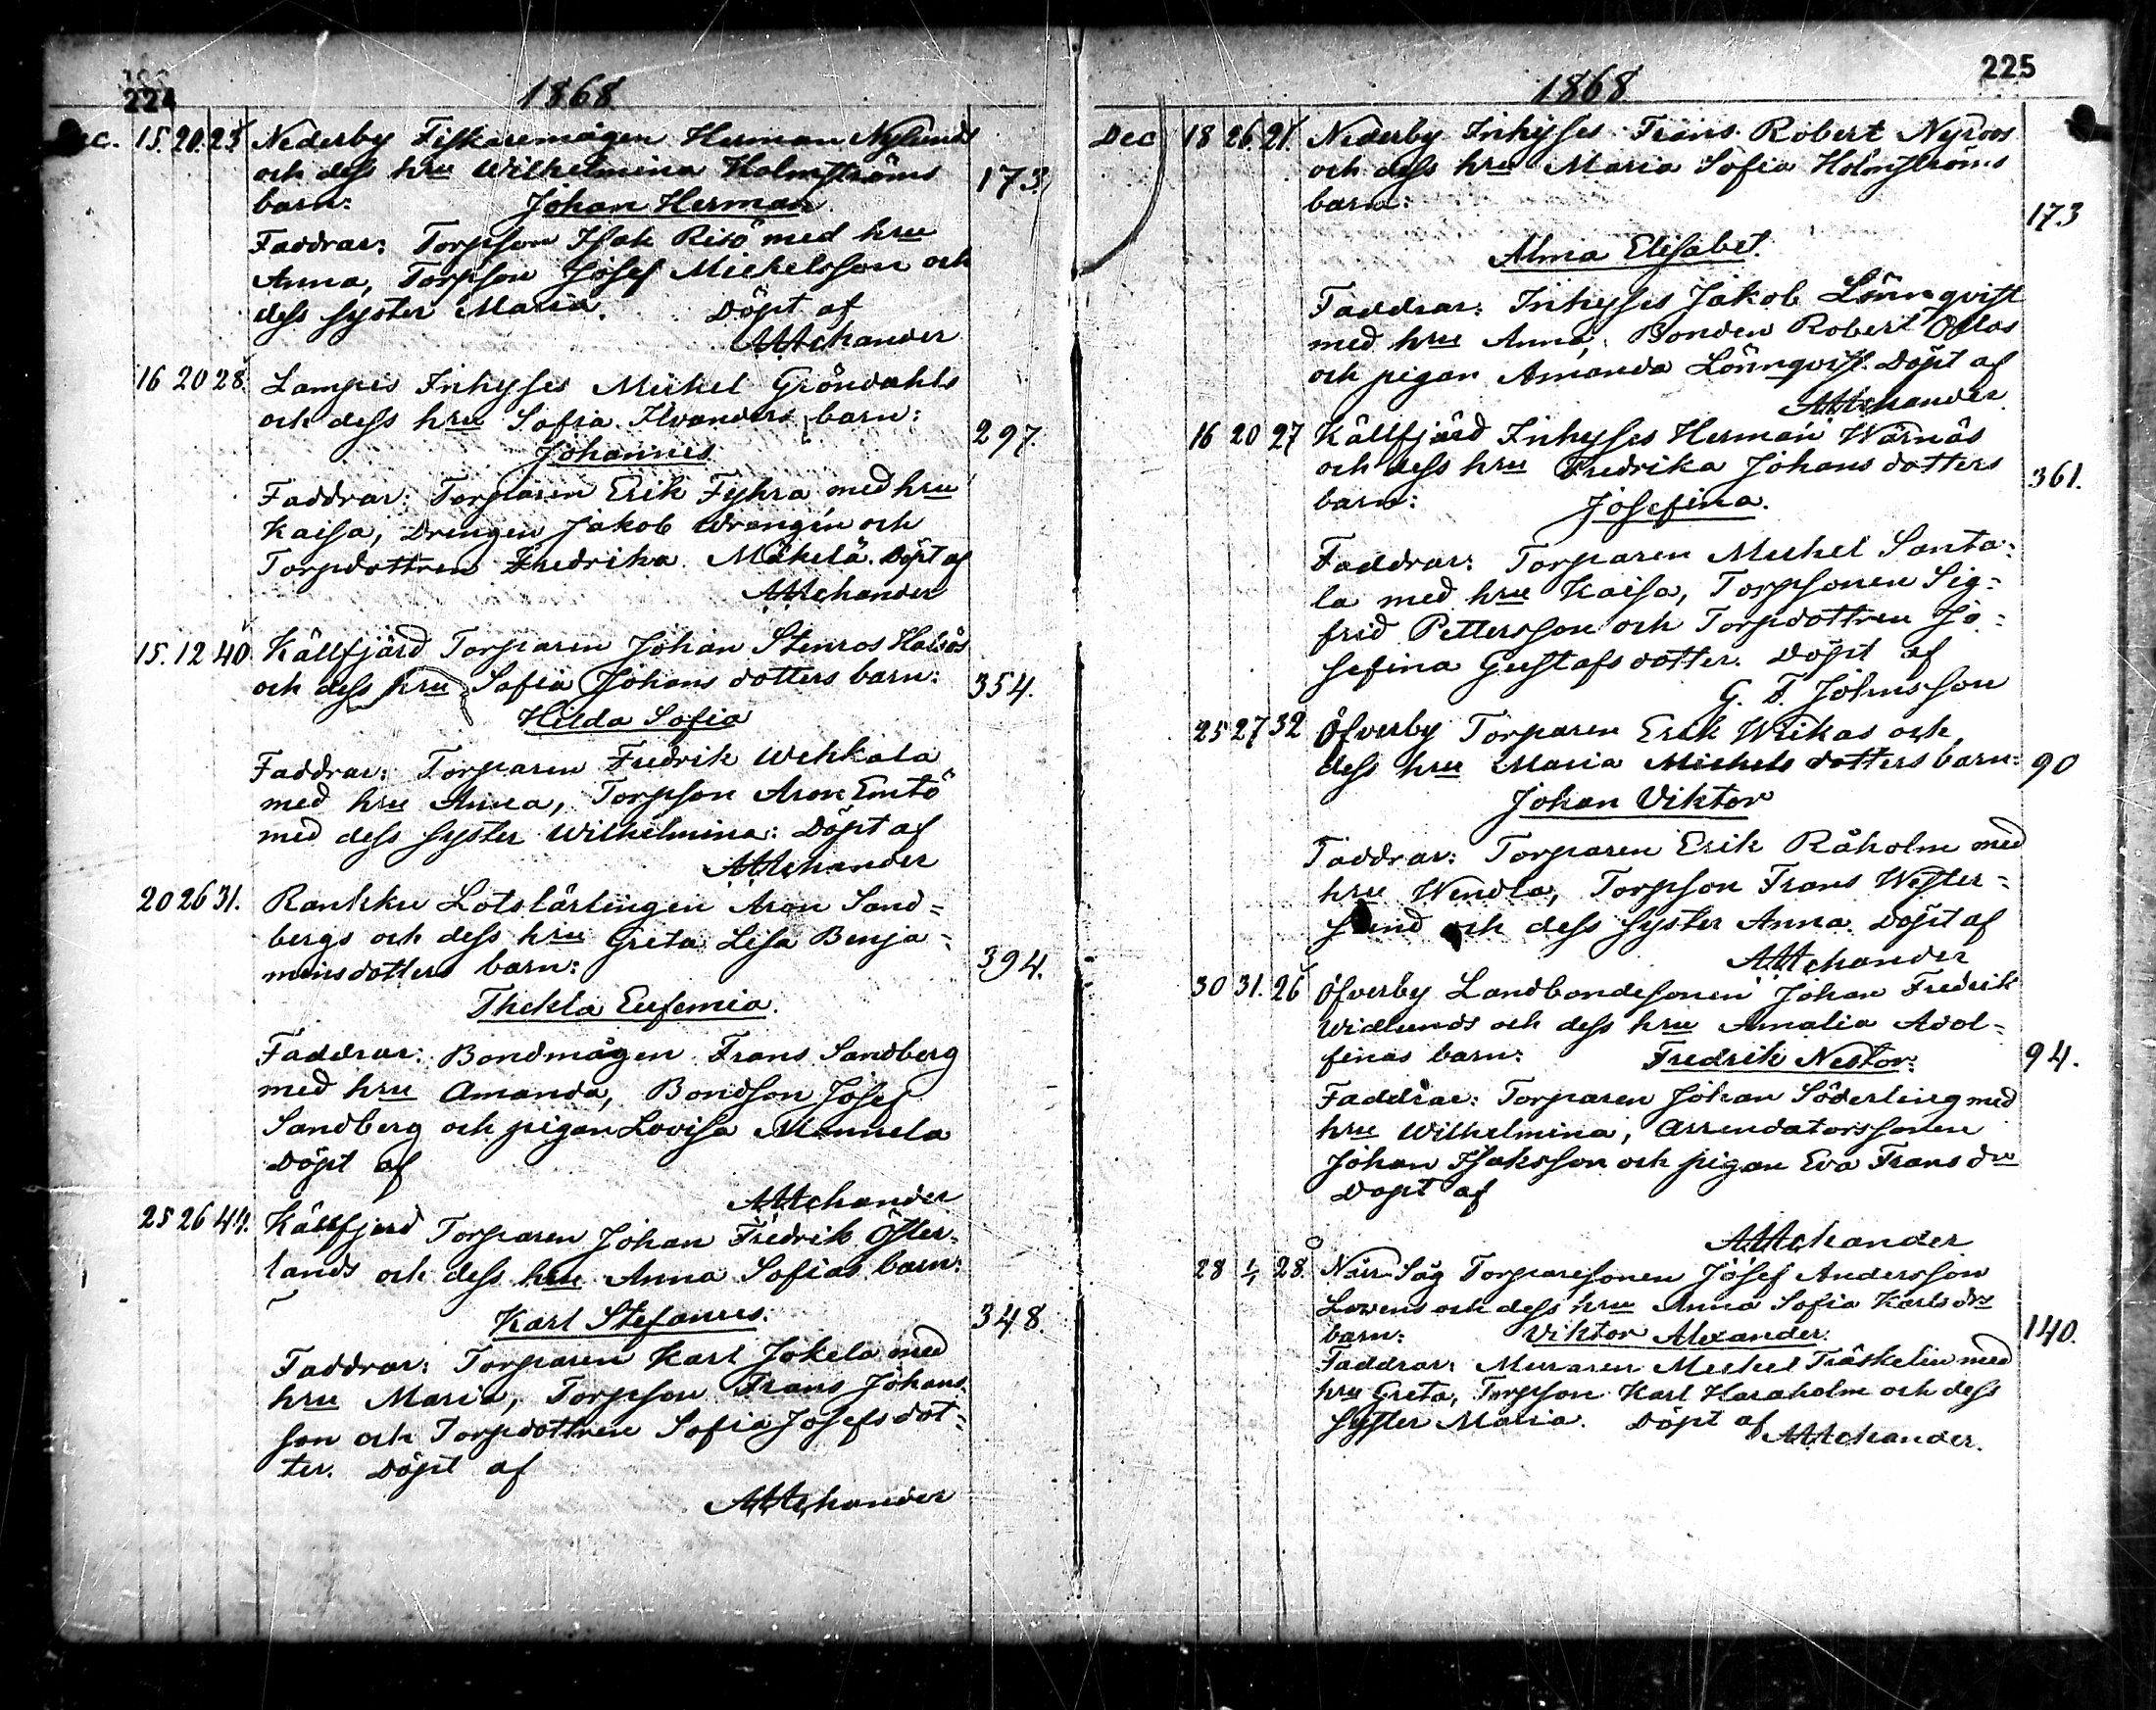 224
1868
Dec. 15. 20. 23 Nederby Fiskaremågen Herman Nylunds
och dess hru Wilhelmina Holmströms 173
barn: Johan Herman
Faddrar: Torpson Isak Risö med hru
Anna, Torpson Josef Michelsson och
dess syster Maria. Döpt af
16 20 28. Lampis Inhyses Michel Gröndahls
och dess hru Sofia Ilvanders barn: 297.
Johannes
Faddrar: Torparen Erik Fyhra med hru
Kaisa, Drengen Jakob Wrengin och
Torpdottren Fredrika Mäkelä. Döpt af
15. 12 40 Källfjärd Torparen Johan Stenros Halsös
och dess hru Sofia Johansdotters barn: 354.
Hilda Sofia
Faddrar: Torparen Fredrik Wehkala
med hru Anna, Torpson Aron Emtö
med dess syster Wilhelmina: Döpt af
20 26 31. Rankku Lotslärlingen Aron Sand=
bergs och dess hru Greta Lisa Benja=
minsdotters barn: 394.
Thekla Eufemia.
Faddrar: Bondmågen Frans Sandberg
med hru Amanda, Bondson Josef
Sandberg och pigan Lovisa Mannela
Döpt af
25 26 44. Källfjerd Torparen Johan Fredrik Öster=
lands och dess hru Anna Sofias barn:
Karl Stefanus. 348.
Faddrar: Torparen Karl Jokela med
hru Maria, Torpson Frans Johans
son och Torpdottren Sofia Josefsdot=
ter. Döpt af
225
1868
Dec 18 26. 21. Nederby Inhyses Frans Robert Nyroos
och dess hru Maria Sofia Holmströms
barn: 173
Alma Elisabet.
Faddrar: Inhyses Jakob Lönnqvist
med hru Anna, Bonden Robert
och pigan Amanda Lönnqvist. Döpt af
16 20 27 Källfjärd Inhyses Herman Wärnäs
och dess hru Fredrika Johansdotters
barn: Josefina. 361.
Faddrar: Torparen Michel Santa=
la med hru Kaisa, Torpsonen Sig=
frid Pettersson och Torpdottren Jo=
sefina Gustafsdotter. Döpt af
G. F. Johnsson
25 27 32 Öfverby Torparen Erik Wiikas och
dess hru Maria Michelsdotters barn: 90
Johan Viktor
Faddrar: Torparen Erik Råholm med
hru Wendla, Torpson Frans Wester=
sund och dess syster Anna. Döpt af
30 31. 26 Öfverby Landbondesonen Johan Fredrik
Widlunds och dess hru Amalia Adol=
finas barn: Fredrik Nestor: 94.
Faddrar: Torparen Johan Söderling med
hru Wilhelmina, Arrendatorssonen
Johan Isaksson och pigan Eva Fransdr
Döpt af
28 1/1 28. Norr Såg Torparesonen Josef Andersson
Lovens och dess hru Anna Sofia Karlsdrs
barn: Viktor Alexander. 140.
Faddrar: Muraren Michel Träskelin med
hru Greta, Torpson Karl Haraholm och dess
syster Maria. Döpt af